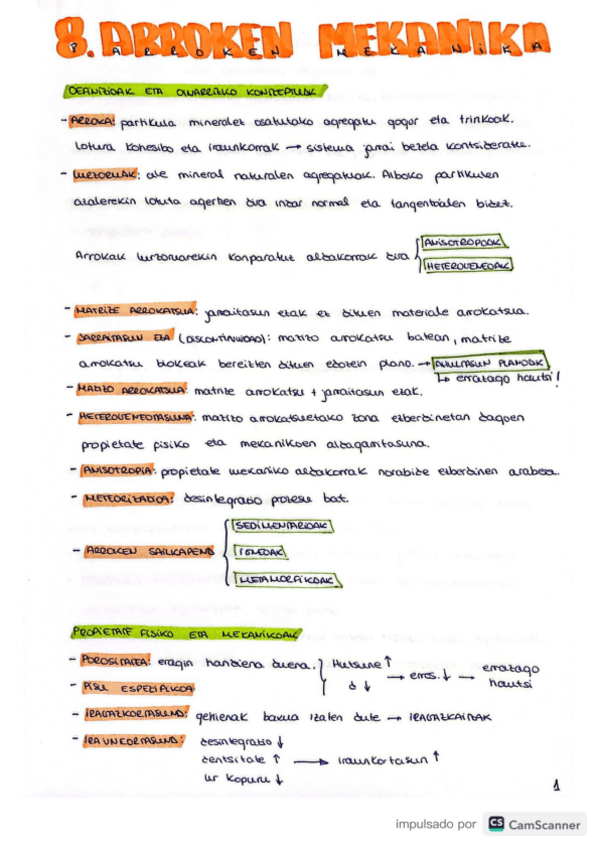 8. ARROKEN MEKANIKA
DEFINIZIOAK ETA OINARRIZKO KONTZEPTUAK
- ARROKA: partikula mineralek osatutako agregatu gogor eta trinkoak.
Lotura kohesibo eta iraunkorrak → sistema jarrai bezela kontsideratu.
- LURZORUAK: ale mineral naturalen agregatuak. Alboko partikulen
atalerekin lotuta agertzen dira indar normal eta tangentzialen bidez.
Arrokak lurzoruarekin konparatuz aldakorrak dira
ANISOTROPOAK
HETEROGENEOAK
- MATRIZE ARROKATSUA: jarraitasun etak ez dituen materiale arrokatsua.
- JARRAITASUN ETA (DISCONTINUIDAD): mazizo arrokatsu batean, matrize
arrokatsu blokeak bereizten dituen edozein plano. → AHULTASUN PLANOAK
↳ errazago hautsi!
- MAZIZO ARROKATSUA: matrize arrokatsu + jarraitasun etak.
- HETEROGENEOTASUNA: mazizo arrokatsuetako zona ezberdinetan dagoen
propietate fisiko eta mekanikoen aldagarritasuna.
- ANISOTROPIA: propietate mekaniko aldakorrak norabide ezberdinen arabera.
- METEORIZAZIOA: desintegrazio prozesu bat.
- ARROKEN SAILKAPENA
SEDIMENTARIOAK
IGNEOAK
METAMORFIKOAK
PROPIETATE FISIKO ETA MEKANIKOAK
- POROSITATEA: eragin handiena duena. Hutsune ↑ → erres. ↓ → errazago hautsi
- PISU ESPEZIFIKOA ↓
- IRAGAZKORTASUNA: gehienak baxua izaten dute → IRAGAZKAITZAK
- IRAUNKORTASUNA: desintegrazio ↓
dentsitate ↑ → iraunkortasun ↑
ur kopuru ↓
1
impulsado por CS CamScanner